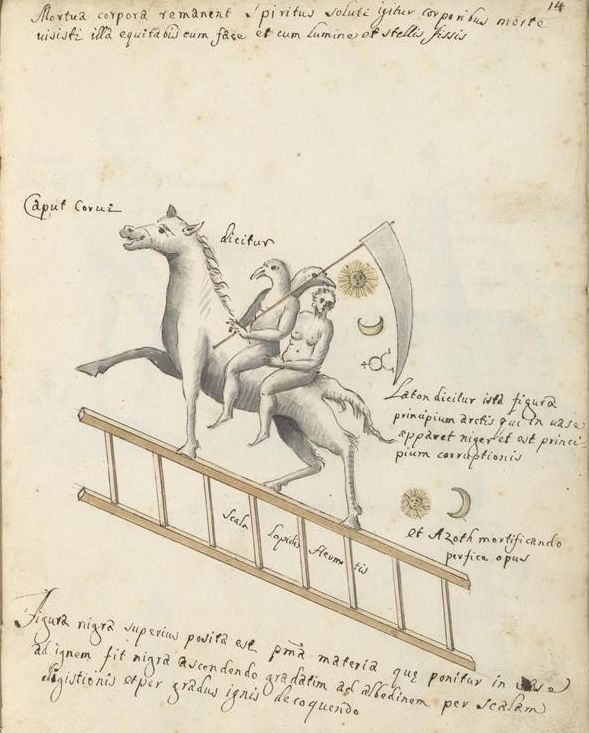 14
Mortua corpora remanent Spiritus soluti igitur corporibus morte
uisisti illã equitabis cum face et cum lumine et stellis fissis
Caput Corui
dicitur
Laton dicitur ista figura
principium artis qui in uase
apparet niger et est princi-
pium corruptionis
et Azoth mortificando
perfice opus
Scala Lapidis
Figura nigra superius posita est pmã materia quę ponitur in uase
ad ignem fit nigra ascendendo gradatim ad albedinem per scalam
digistionis et per gradus ignis decoquendo